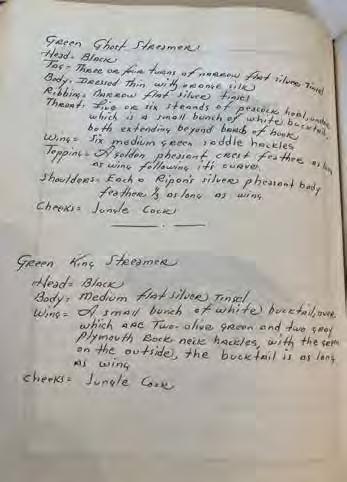 Green Ghost Streamer
Head= Black
Tag= Three or four turns of narrow flat silver tinsel
Body= Dressed Thin with orange silk
Ribbing= Narrow flat silver tinsel
Throat= Five or six strands of peacock herl, under
which is a small bunch of white bucktail,
both extending beyond bend of hook
Wing= Six medium green saddle hackles
Topping= A golden pheasant crest feather as long
as wing following it's curve
Shoulders= Each a Ripon's silver pheasant body
feather 1/3 as long as wing
Cheeks= Jungle Cock
Green King Streamer
Head= Black
Body= Medium flat silver Tinsel
Wing= A small bunch of white bucktail, over
which are Two olive green and two gray
Plymouth Rock neck hackles, with the green
on the outside, the bucktail is as long
as wing
Cheeks= Jungle Cock